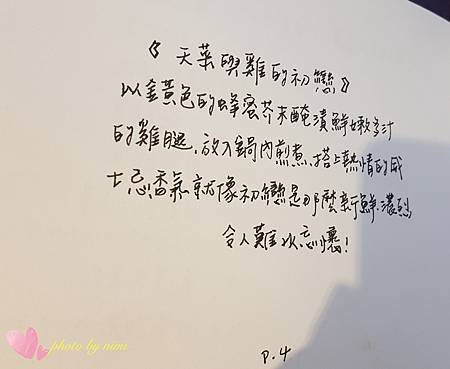 《天菜與雞的初戀》
以金黃色的蜂蜜芥末醃漬鮮嫩多汁
的雞腿,放入鍋內煎煮,搭上熱情的威
士忌香氣就像初戀是那麼新鮮濃烈,
令人難以忘懷!
P.4
photo by nana